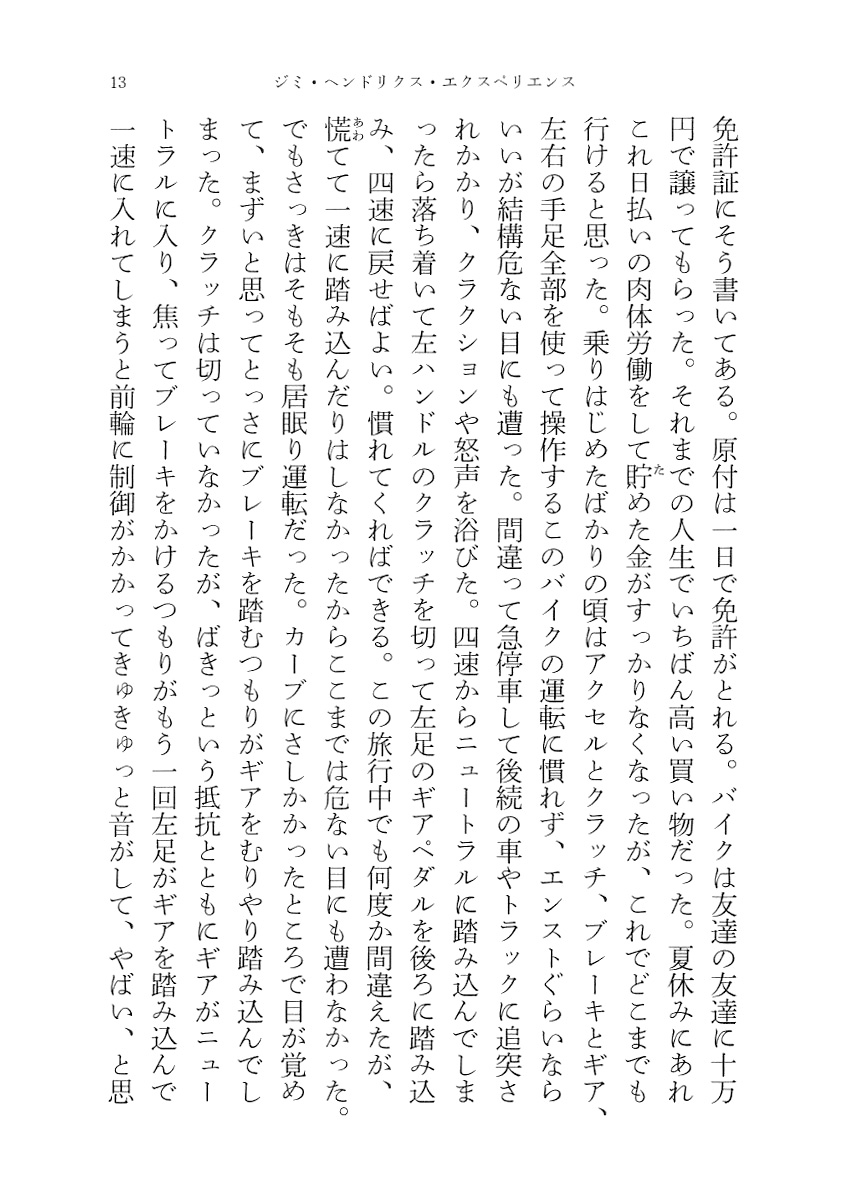 13
ジミ・ヘンドリクス・エクスペリエンス
免許証にそう書いてある。原付は一日で免許がとれる。バイクは友達の友達に十万
円で譲ってもらった。それまでの人生でいちばん高い買い物だった。夏休みにあれ
これ日払いの肉体労働をして貯めた金がすっかりなくなったが、これでどこまでも
た
行けると思った。乗りはじめたばかりの頃はアクセルとクラッチ、ブレーキとギア、
左右の手足全部を使って操作するこのバイクの運転に慣れず、エンストぐらいなら
いいが結構危ない目にも遭った。間違って急停車して後続の車やトラックに追突さ
れかかり、クラクションや怒声を浴びた。四速からニュートラルに踏み込んでしま
ったら落ち着いて左ハンドルのクラッチを切って左足のギアペダルを後ろに踏み込
み、四速に戻せばよい。慣れてくればできる。この旅行中でも何度か間違えたが、
慌てて一速に踏み込んだりはしなかったからここまでは危ない目にも遭わなかった。
あわ
でもさっきはそもそも居眠り運転だった。カーブにさしかかったところで目が覚め
て、まずいと思ってとっさにブレーキを踏むつもりがギアをむりやり踏み込んでし
まった。クラッチは切っていなかったが、ばきっという抵抗とともにギアがニュー
トラルに入り、焦ってブレーキをかけるつもりがもう一回左足がギアを踏み込んで
一速に入れてしまうと前輪に制御がかかってきゅきゅっと音がして、やばい、と思